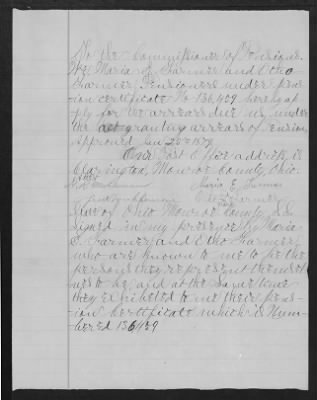 To the Commissioner of Pensions.
We Maria E. Farmer and Otho
Farmer Pensioners under pen-
sion certificate No 136,459 hereby ap
ply for the arrears due us under
the act granting arrears of Pension
approved Jan 25th 1879
Our Post Office address is
Clarington, Monroe County, Ohio.
Maria E. Farmer
Farmer
State of Ohio Monroe County S.S.
Signed in my presence by Maria
E. Farmer and Otho Farmer
who are known to me to be the
persons they represent themsel
ves to be, and at the same time
they exhibited to me their pen-
sion certificate which is Num-
bered 136459